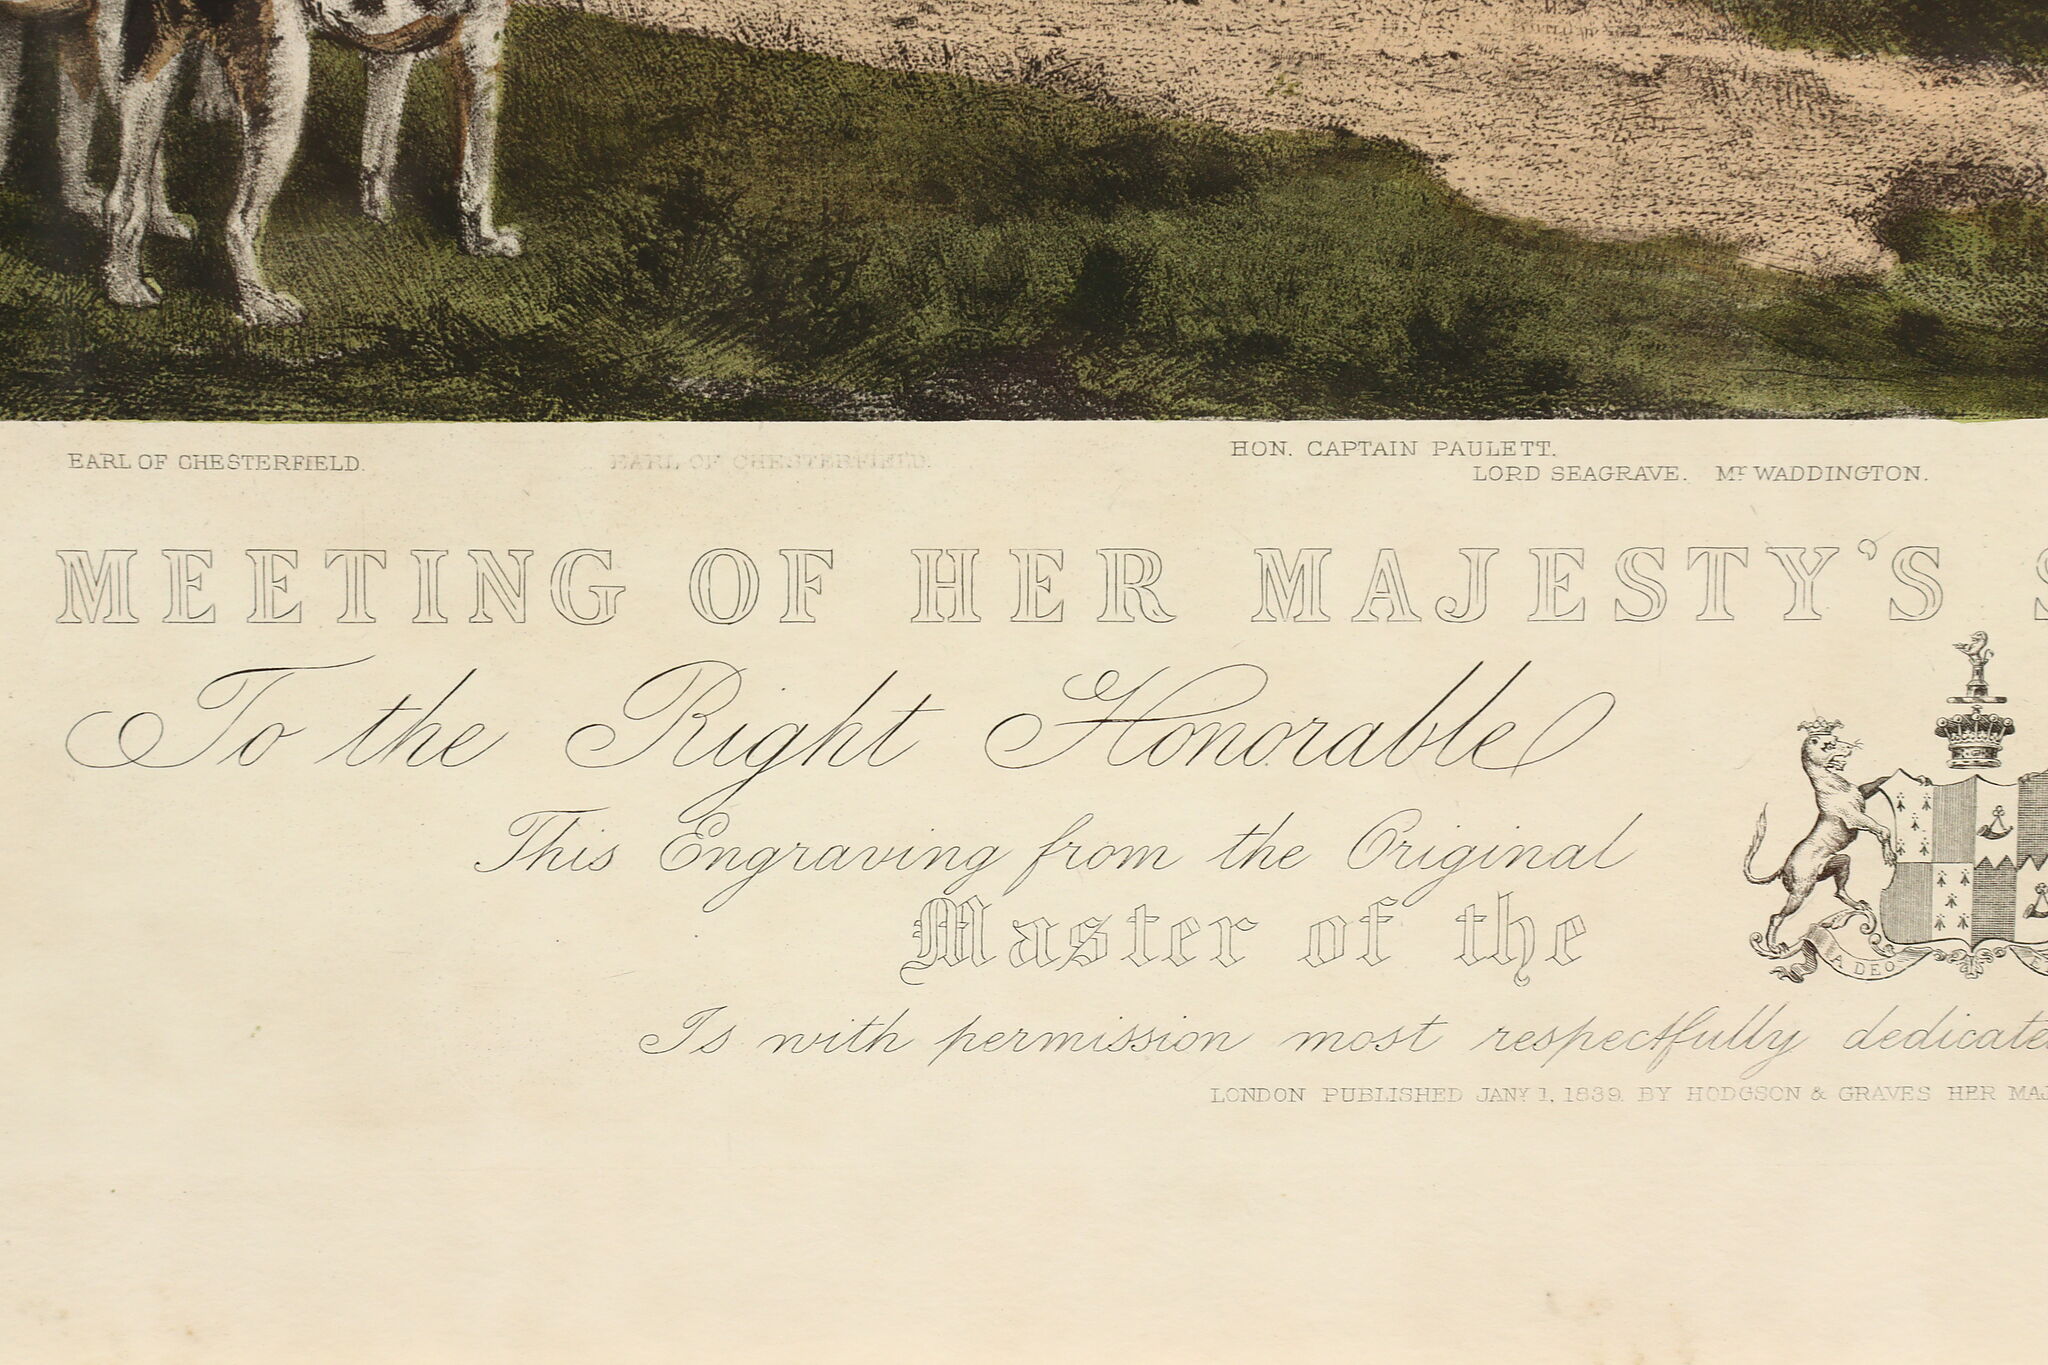 EARL OF CHESTERFIELD. EARL OF CHESTERFIELD. HON. CAPTAIN PAULETT.
LORD SEAGRAVE. Mr WADDINGTON.
MEETING OF HER MAJESTY'S S
To the Right Honorable
This Engraving from the Original
Master of the
A DEO
Is with permission most respectfully dedicate
LONDON PUBLISHED JANY 1, 1839. BY HODGSON & GRAVES HER MAJ